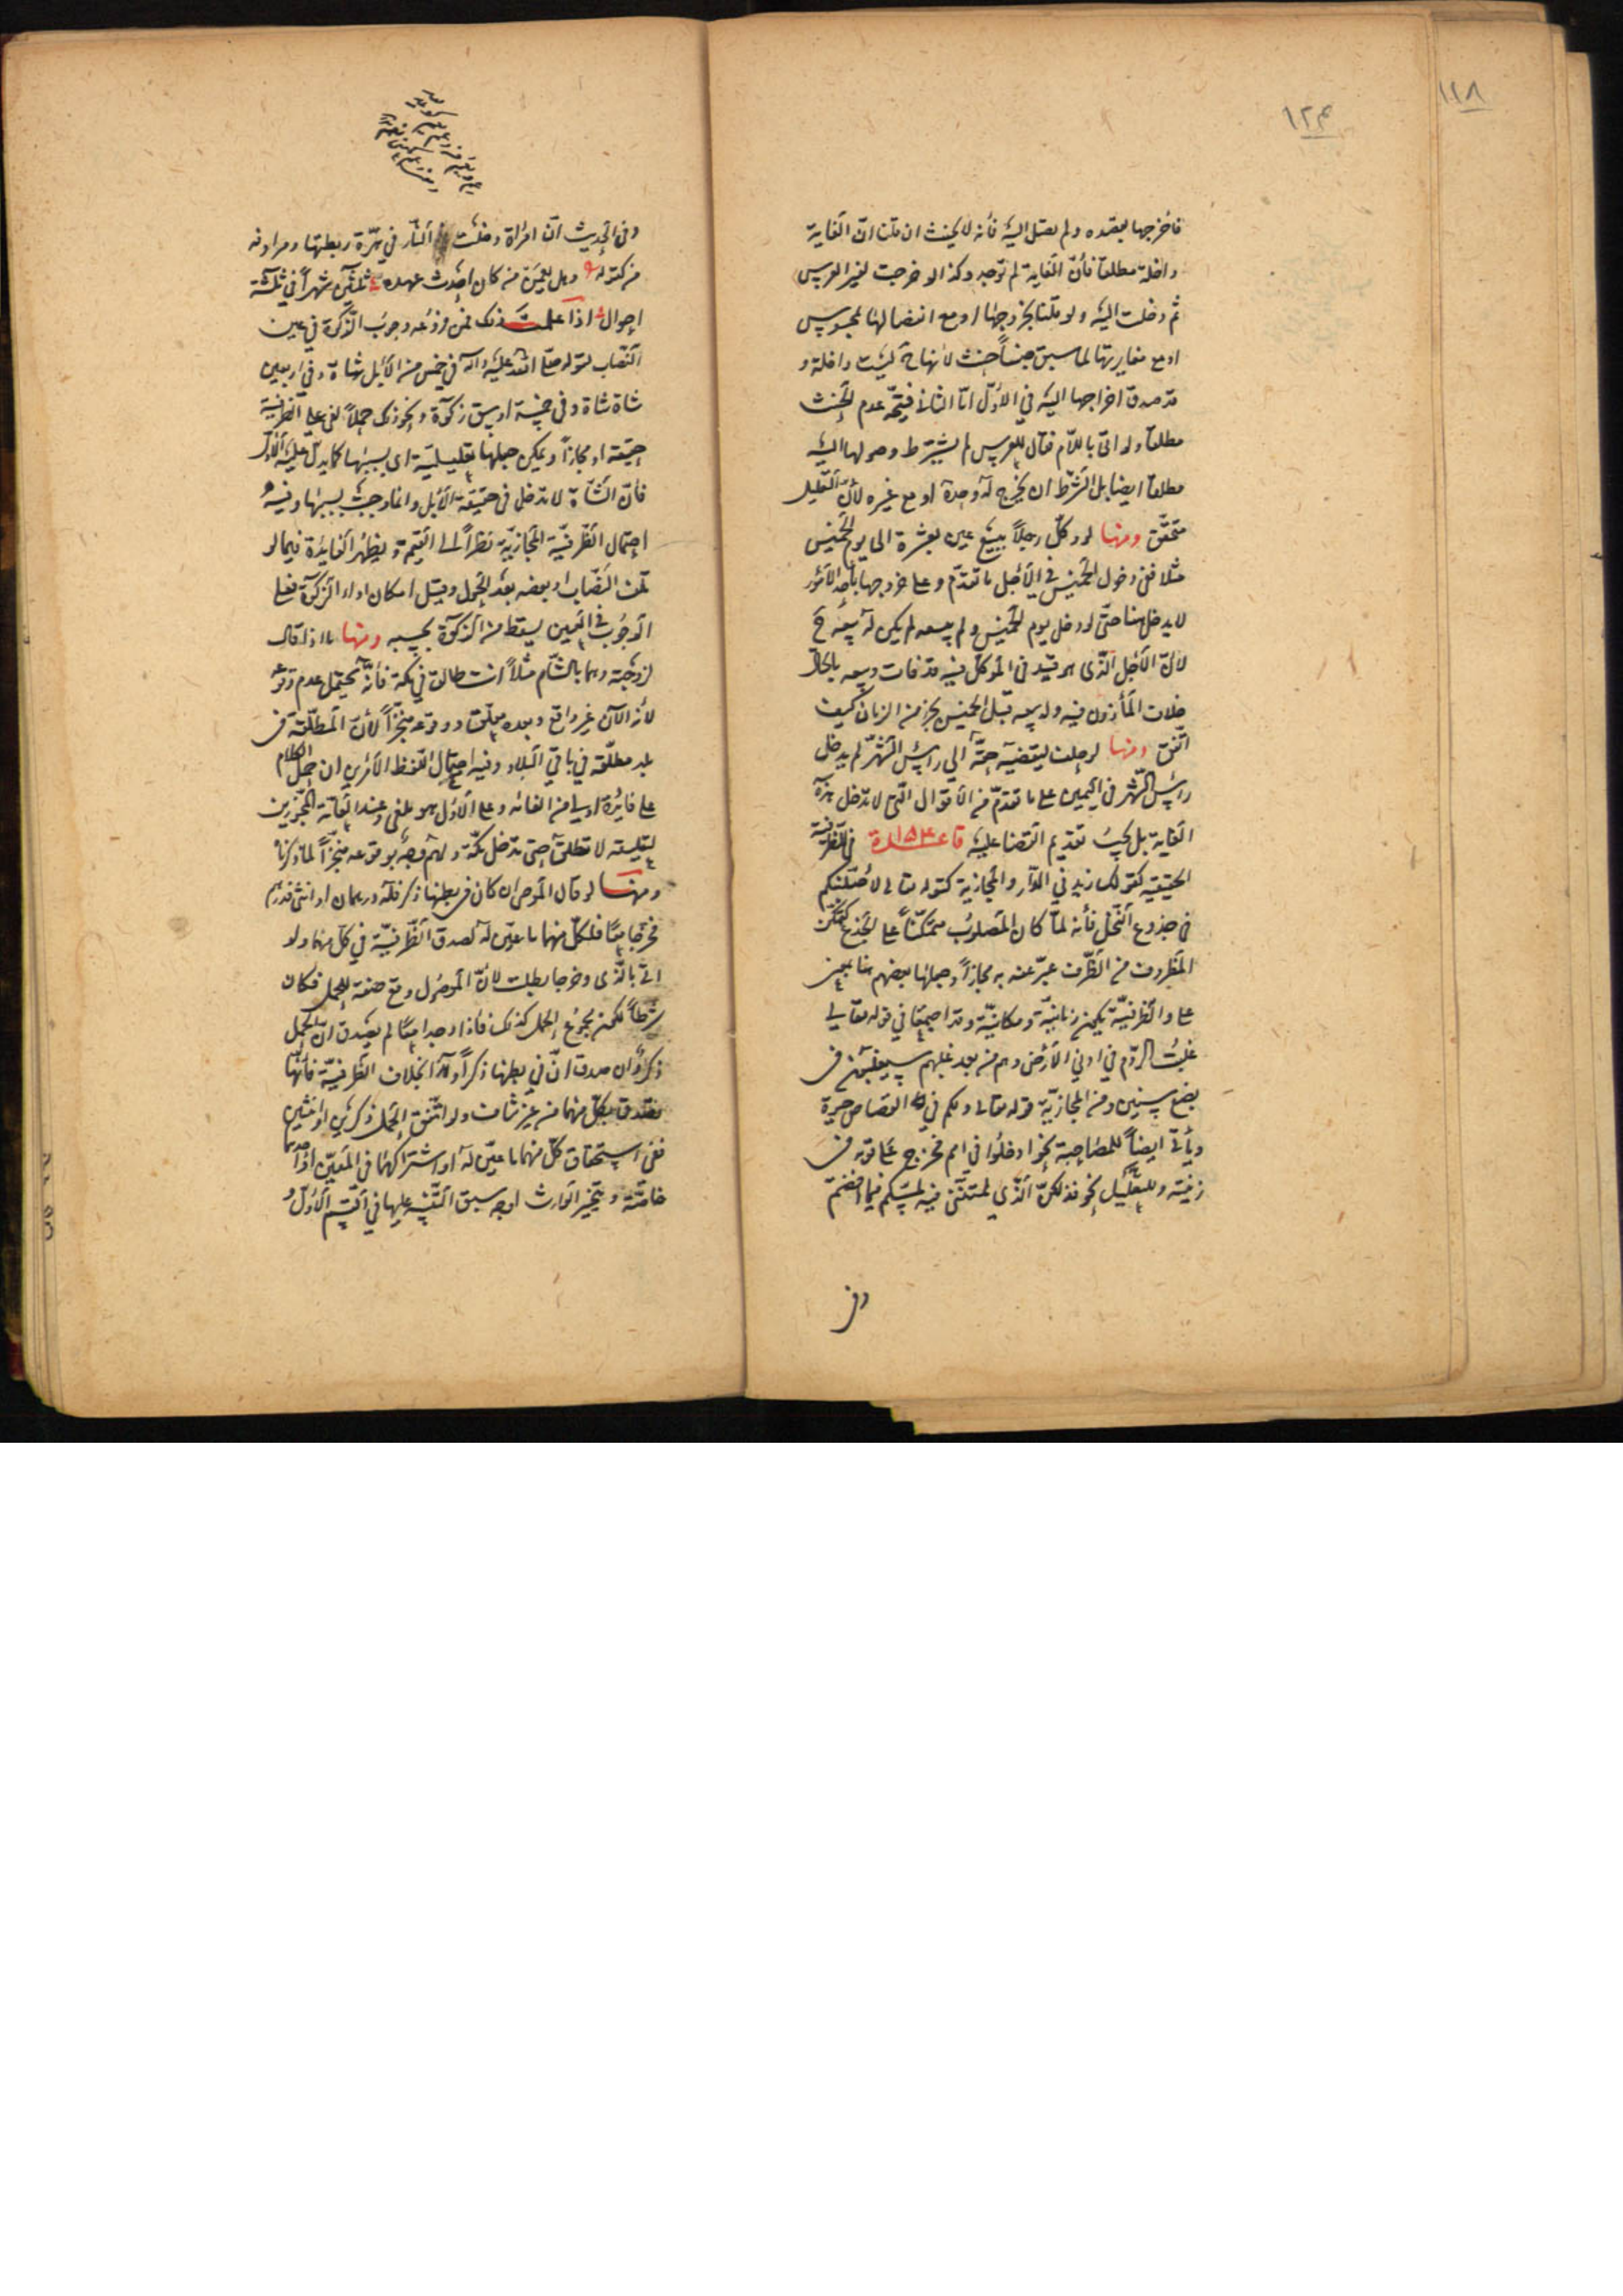 ١١٨
١٢٣
فأخرجها بقصده ولم يصل اليه فأنه لا يحنث ان قلنا انّ الغاية
داخلة مطلقا فأنّ الغاية لم توجد وكذا لو خرجت لغير العرس
ثم دخلت اليه ولو قلنا بخروجها او مع انفصالها بمحسوس
او مع مغايرتها لما سبق جنساً حنث لأنها ح ليست داخلة و
قد صدق اخراجها اليه في الأوّل امّا الثاني فيتجه عدم الحنث
مطلقا ولو اتى باللّام فقال للعرس لم يشترط وصولها اليه
مطلقا ايضا بل الشرط ان يخرج له وحده او مع غيره لأنّ التعليل
متحقّق ومنها لو وكّل رجلاً ببيع عين بعشرة الى يوم الخميس
مثلا ففي دخول الخميس في الأجل ما تقدّم وعلى خروجها بأحد الأمور
لا يدخل هنا حتى لو دخل يوم الخميس ولم يبعه لم يكن له بيعه ح
لأنّ الأجل الّذي هو قيد في الموكّل فيه قد فات وبيعه بالحالّ
خلاف المأذون فيه وله بيعه قبل الخميس بجزء من الزمان كيف
اتّفق ومنها لو حلف ليقضينه حقّه الى رأس الشهر لم يدخل
رأس الشهر في اليمين على ما تقدّم من الأقوال الّتي لا تدخل هذه
الغاية بل يجب تقديم القضا عليه قاعدة ١٥٣ في للظرفية
الحقيقية كقولك زيد في الدّار والمجازية كقوله تعالى لأصلبنّكم
في جذوع النّخل فأنه لمّا كان المصلوب متمكّناً على الجذع كتمكّن
المظروف من الظّرف عبّر عنه به مجازاً وجعلها بعضهم هنا بمعنى
على والظرفيّة يكون زمانيّة ومكانيّة وقد اجتمعتا في قوله تعالى
غلبت الرّوم في ادنى الأرض وهم من بعد غلبهم سيغلبون في
بضع سنين ومن المجازيّة قوله تعالى ولكم في القصاص حيوة
ويأتي ايضاً للمصاحبة نحو ادخلوا في امم فخرج على قومه في
زينته وللتعليل نحو فذلكنّ الّذي لمتنّني فيه لمسّكم فيما افضتم
وفي
وفي الحديث انّ امرأة دخلت النّار في هرّة ربطتها ومرادفه
من كقوله وهل يعمن من كان احدث عهده ثلثين شهراً في ثلثة
احوال اذا علمت ذلك فمن فروعه وجوب الزّكوة في عين
النّصاب لقوله صلى الله عليه وآله في خمس من الأبل شاة وفي اربعين
شاة شاة وفي خمسة اوسق زكوة ونحو ذلك حملاً لفي على الظرفيّة
حقيقة او مجازاً ويمكن جعلها تعليليّة اى بسببها كما يدلّ عليه الأوّل
فأنّ الشّاة لا تدخل في حقيقة الأبل وانما وجبت بسببها وفيه
احتمال الظّرفيّة المجازيّة نظراً الى القيمة ويظهر الفايدة فيما لو
تلف النّصاب او بعضه بعد الحول وقبل امكان اداء الزكوة فعلى
الوجوب في العين يسقط من الزكوة بحسبه ومنها ما اذا قال
لزوجته وهما بالشّام مثلاً انت طالق في مكة فأنّه يحتمل عدم وقوعه
لأنه الآن غير واقع وبعده معلّق ووقوعه منجّزاً لأنّ المطلّقة في
بلد مطلّقة في باقي البلاد وفيه احتمال اللفظ الأمرين ان حمل الكلام
على فائدة اولى من الغائه وعلى الأوّل هو ملغى وعند العامّة المجوّزين
لتعليقه لا تطلّق حتى تدخل مكّة ولهم وجه بوقوعه منجّزاً لما ذكرناه
ومنها لو قال الموصى ان كان في بطنها ذكر فله درهمان او انثى فدرهم
فخرجا معًا فلكلّ منهما ما عيّن له لصدق الظّرفيّة في كلّ منهما ولو
اتى بالّذي وخرجا بطلت لأنّ الموصول وقع صفة للحمل فكان
شرطاً لكون مجموع الحمل كذلك فاذا وجدا معًا لم يصدق انّ الحمل
ذكر وان صدق انّ في بطنها ذكراً بخلاف الظرفيّة فأنّها
تصدق بكلّ منهما من غير تناف ولو اتّفق الحمل ذكرين او انثيين
ففي استحقاق كلّ منهما ما عيّن له او اشتراكهما في المعيّن او احدهما
خاصّة ويتخير الوارث اوجه سبق التّنبيه عليها في القسم الأوّل و